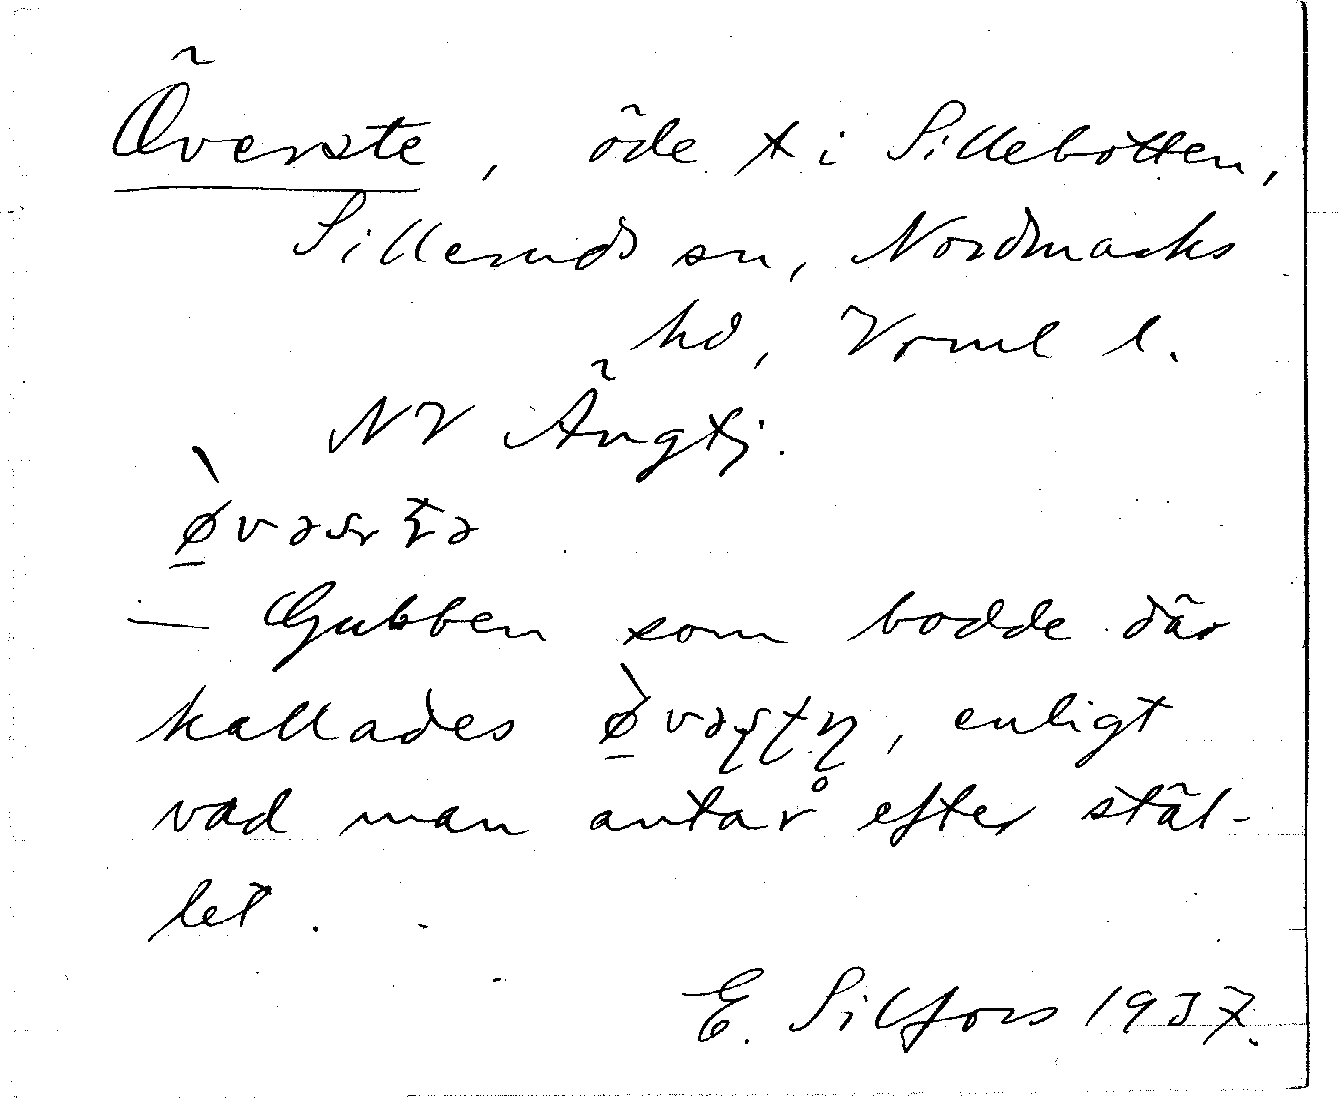 Överste, öde t i Sillebotten,
Silleruds sn, Nordmarks
hd, Vrml l.
NV Ängtj.
ø̱̀vəsʈə
— Gubben som bodde där
kallades ø̱̀vəʂʈɳ, enligt
vad man antar efter stäl-
let.
E. Silfors 1937.